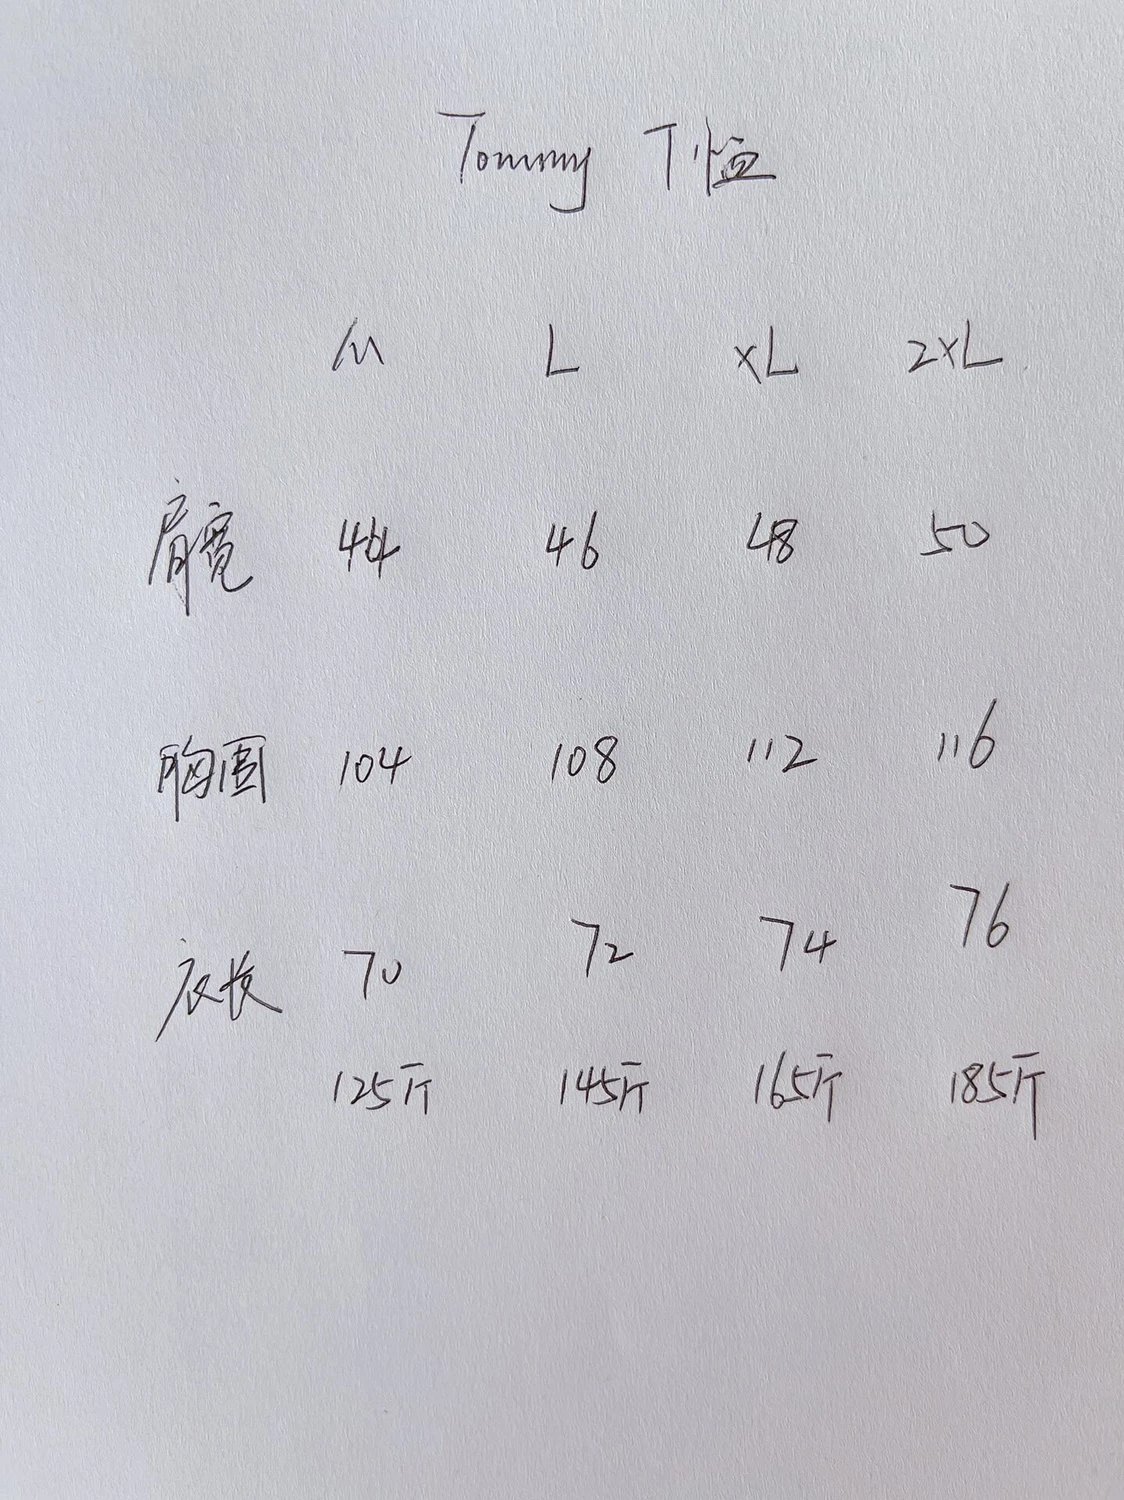 Tommy T恤
M L XL 2XL
肩宽 44 46 48 50
胸围 104 108 112 116
衣长 70 72 74 76
125斤 145斤 165斤 185斤